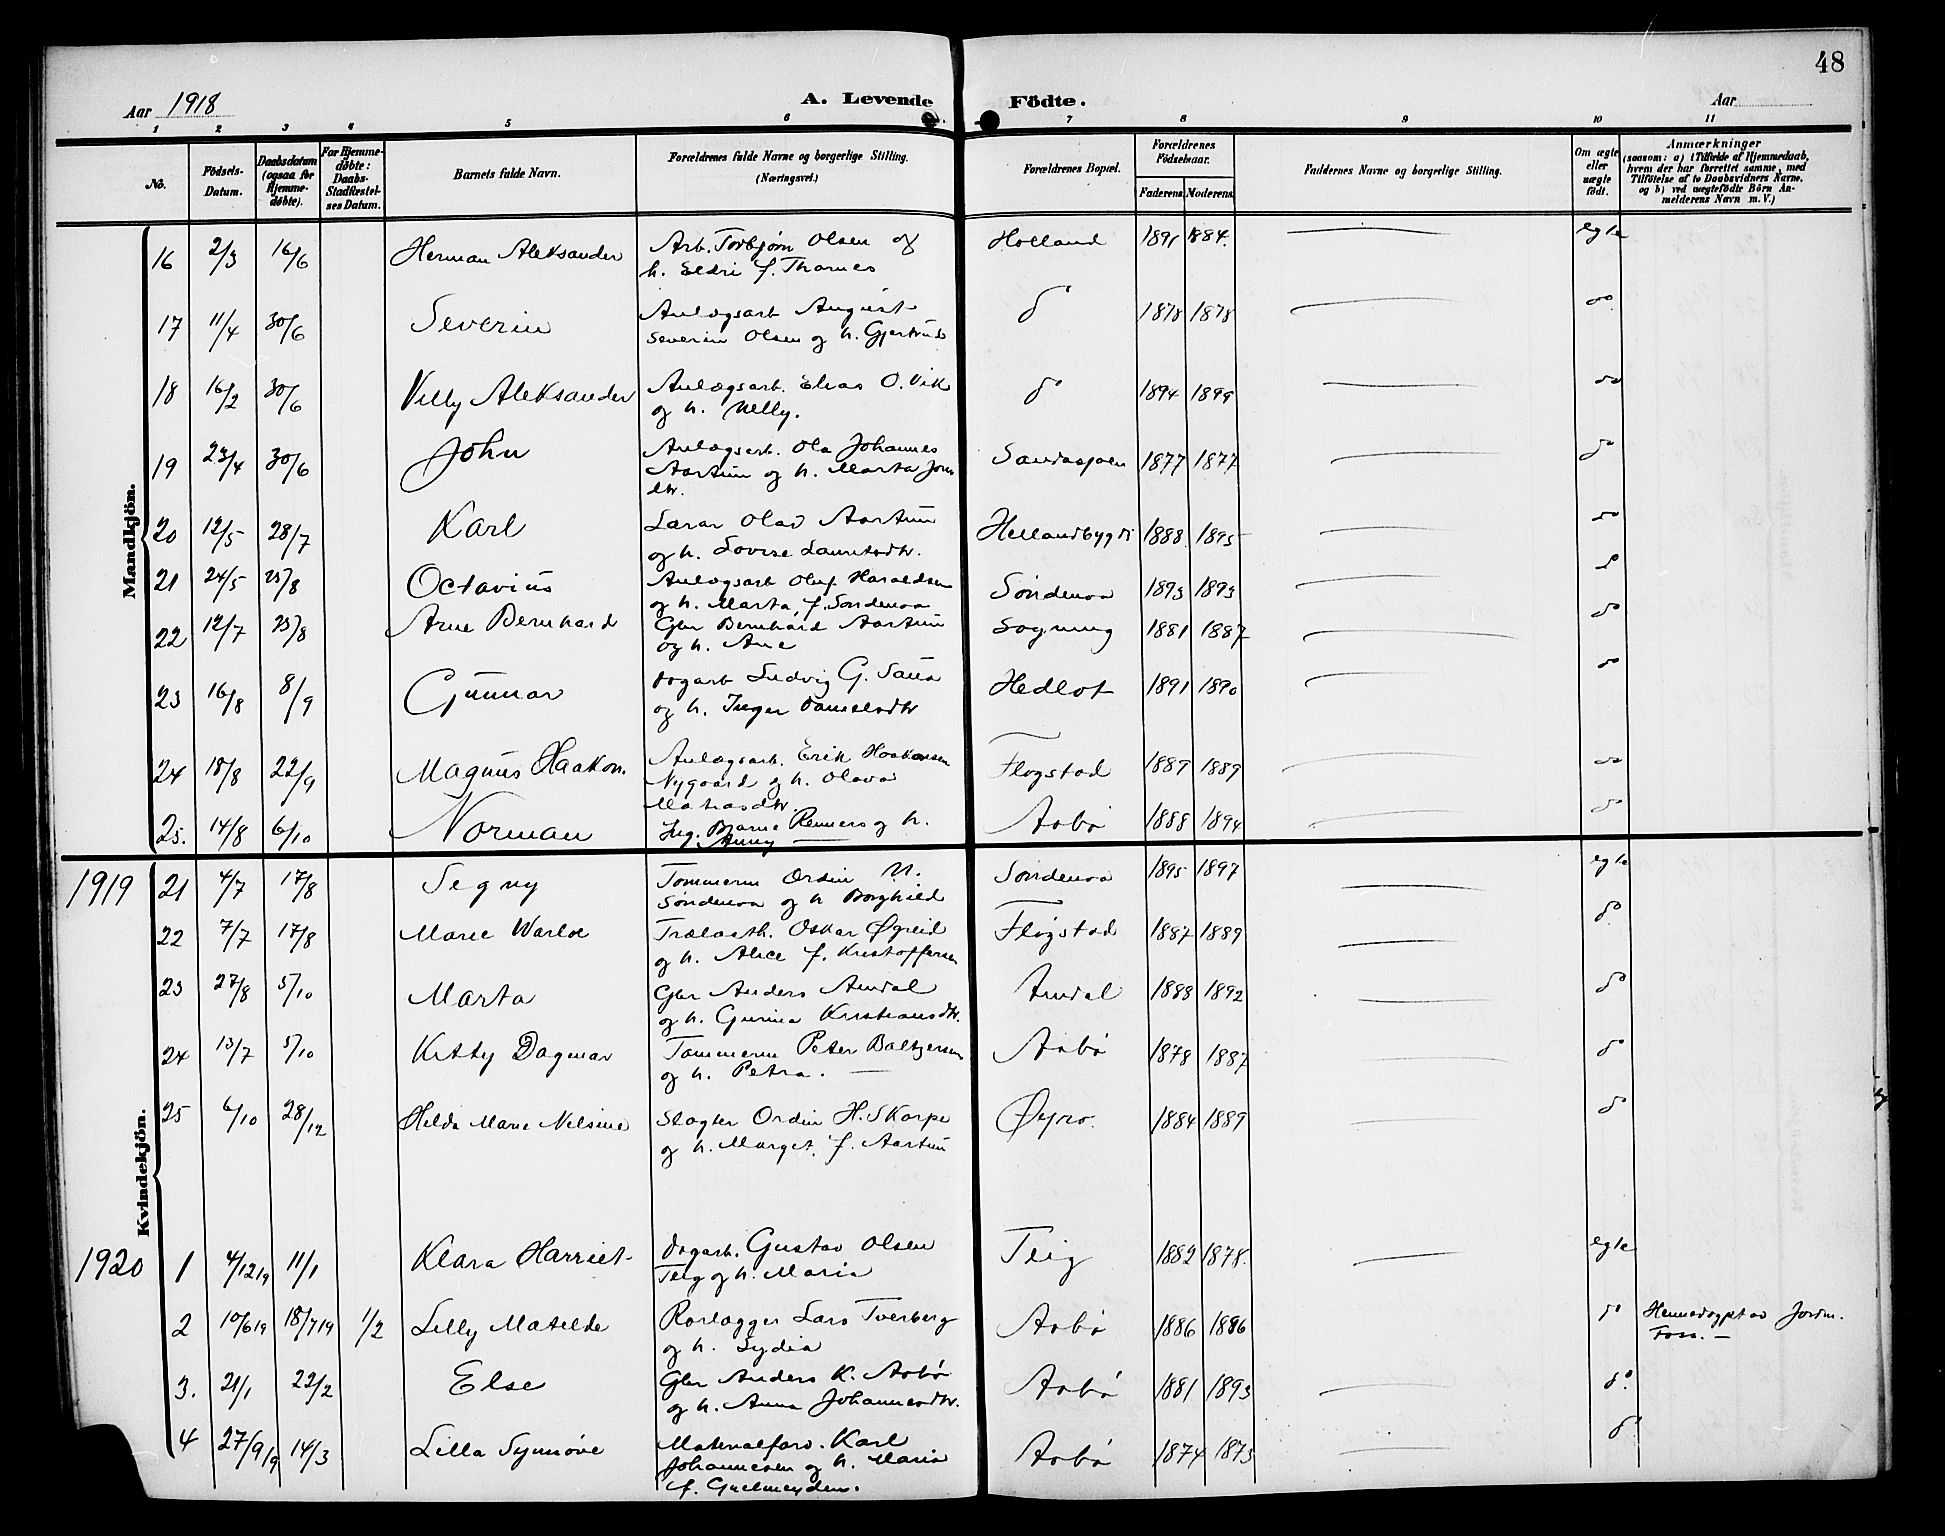 48
Aar 1918 A. Levende Födte. Aar
1 2 3 4 5 6 7 8 9 10 11
No. Födsels-Datum. Daabsdatum (ogsaa for Hjemme-døbte). For Hjemme-døbte: Daabs-Stadfæstel-ses Datum. Barnets fulde Navn. Forældrenes fulde Navne og borgerlige Stilling. (Næringsvei.) Forældrenes Bopæl. Forældrenes Födselsaar. Faderens. Moderens. Faddernes Navne og borgerlige Stilling. Om ægte eller uægte født. Anmærkninger (saasom: a) i Tilfælde af Hjemmedaab, hvem der har forrettet samme, med Tilföielse af to Daabsvidners Navne, og b) ved uægtefödte Börn An-melderens Navn m. V.)
Mandkjön.
16 2/3 16/6 Herman Aleksander Arb. Torbjørn Olsen og Holland 1891 1884. egte
h. Eldri f. Thornes
17 11/4 30/6 Severin Anlægsarb August do 1878 1878 do
Severin Olsen og h. Gjertrud
18 16/2 30/6 Villy Aleksander Anlægsarb. Elias O. Vik do 1894 1899 do
og h. Nelly.
19 23/4 30/6 John Anlægsarb. Ola Johannes 1877 1877 do
Aartun og h. Marta Jons
dtr.
20 12/5 28/7 Karl Lærar Olav Aartun Hellandbygd 1888 1895 do
og h. Lovise Lauritsdtr.
21 24/5 25/8 Octavius Anlægsarb Oluf Haraldsen Søndenaa 1893 1893 do
og h. Marta, f. Søndenaa
22 12/7 25/8 Arne Bernhard Gbr Bernhard Aartun 1881 1887 do
og h. Ane
23 16/8 8/9 Gunnar Dagarb Ludvig G. 1891 1890 do
og h. Inger Danielsdtr
24 18/8 22/9 Magnus Haakon. Anlægsarb. Erik Haakonsen Fløgstad 1889 1889 do
Nygaard og h. Olava
25. 14/8 6/10 Norman Ing. Bjarne og h. Aabø 1888 1894 do
Anny
Kvindekjön.
1919 21 4/7 17/8 Segny Tømmerm Ordin N. Søndenaa 1895 1897 egte
Søndenaa og h Borghild
22 7/7 17/8 Marie Trælasth. Oskar Øgreid Fløgstad 1887 1889 do
og h. Alice f. Kristoffersen
23 27/8 5/10 Marta Gbr Anders Amdal Amdal 1888 1892 do
og h. Gurina Kristiansdtr.
24 13/7 5/10 Kitty Dagmar Tømmerm Peter Baltzersen Aabø 1878 1887 do
og h. Petra.
25 6/10 28/12 Hilda Marie Nelsine Slagter Ordin H. Skarpe Øyro. 1884 1889 do
og h. Marget, f. Aartun
1920 1 4/12 19 11/1 Klara Harriet Dagarb. Gustav Olsen Teig 1882 1878. egte
Teig og h. Maria
2 10/6 19 18/7 19 1/2 Lilly Matilde Rørlægger Lars Tverberg Aabø 1886 1886 do Jordm.
og h. Lydia Foss.
3. 21/1 22/2 Else Gbr Anders K. Aabø Aabø 1881 1893 do.
og h. Anna Johannesdtr.
4 27/9 19 14/3 Lilla Synnøve Materialforv. Karl Aabø 1874 1873 do
Johannesen og h. Maria